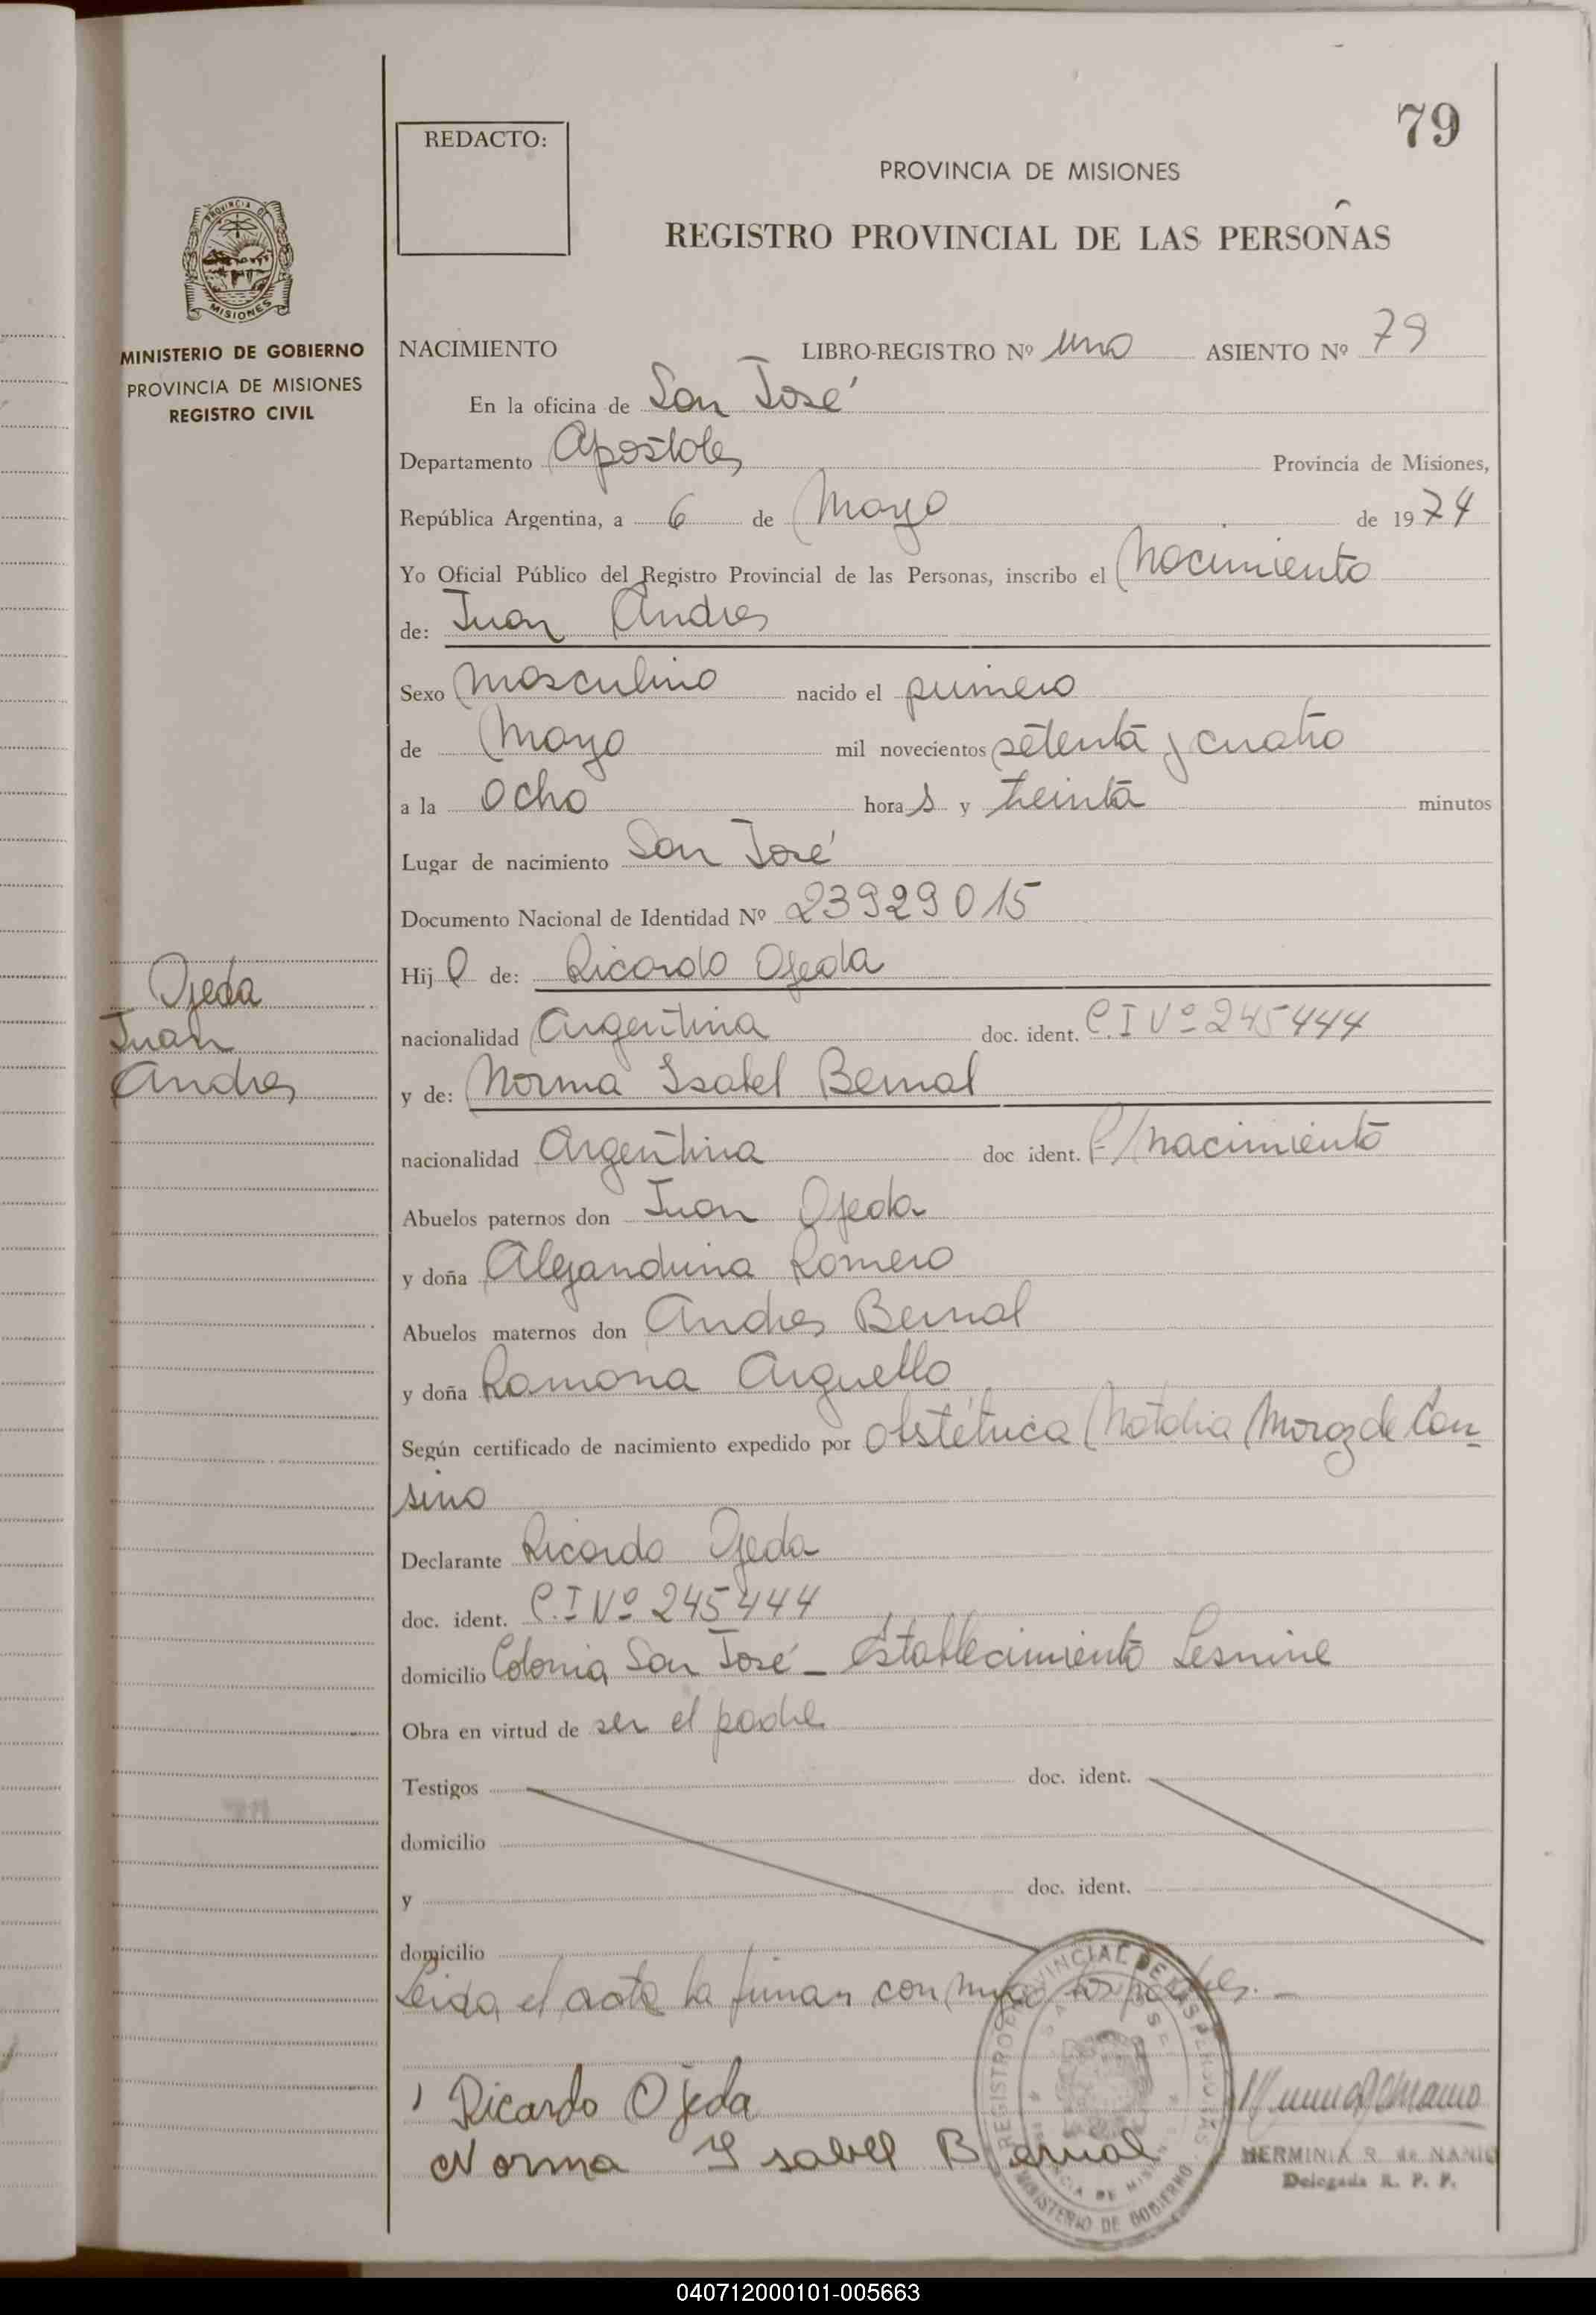 79
REDACTO:
PROVINCIA DE MISIONES
REGISTRO PROVINCIAL DE LAS PERSONAS
PROVINCIA DE
MISIONES
MINISTERIO DE GOBIERNO
PROVINCIA DE MISIONES
REGISTRO CIVIL
NACIMIENTO LIBRO-REGISTRO Nº uno ASIENTO Nº 79
En la oficina de San José
Departamento Apostoles Provincia de Misiones,
República Argentina, a 6 de Mayo de 1974
Yo Oficial Público del Registro Provincial de las Personas, inscribo el Nacimiento
de: Juan Andres
Sexo Masculino nacido el primero
de Mayo mil novecientos setenta y cuatro
a la Ocho hora s y treinta minutos
Lugar de nacimiento San José
Documento Nacional de Identidad Nº 23929015
Hij o de: Ricardo Ojeda
Ojeda
Juan
Andres
nacionalidad Argentina doc. ident. C.I Nº 245444
y de: Norma Isabel Bernal
nacionalidad Argentina doc ident. P/nacimiento
Abuelos paternos don Juan Ojeda
y doña Alejandrina Romero
Abuelos maternos don Andres Bernal
y doña Ramona Arguello
Según certificado de nacimiento expedido por Obstétrica Natalia Moroz de Can
sino
Declarante Ricardo Ojeda
doc. ident. C.I Nº 245444
domicilio Colonia San José - Establecimiento
Obra en virtud de ser el padre
Testigos doc. ident.
domicilio
y doc. ident.
domicilio
Leida el acta la firman conmigo los padres. -
Ricardo Ojeda
Norma Isabel Bernal
REGISTRO PROVINCIAL DE LAS PERSONAS
SAN JOSE
MINISTERIO DE GOBIERNO
HERMINIA R. de
Delegada R. P. P.
040712000101-005663